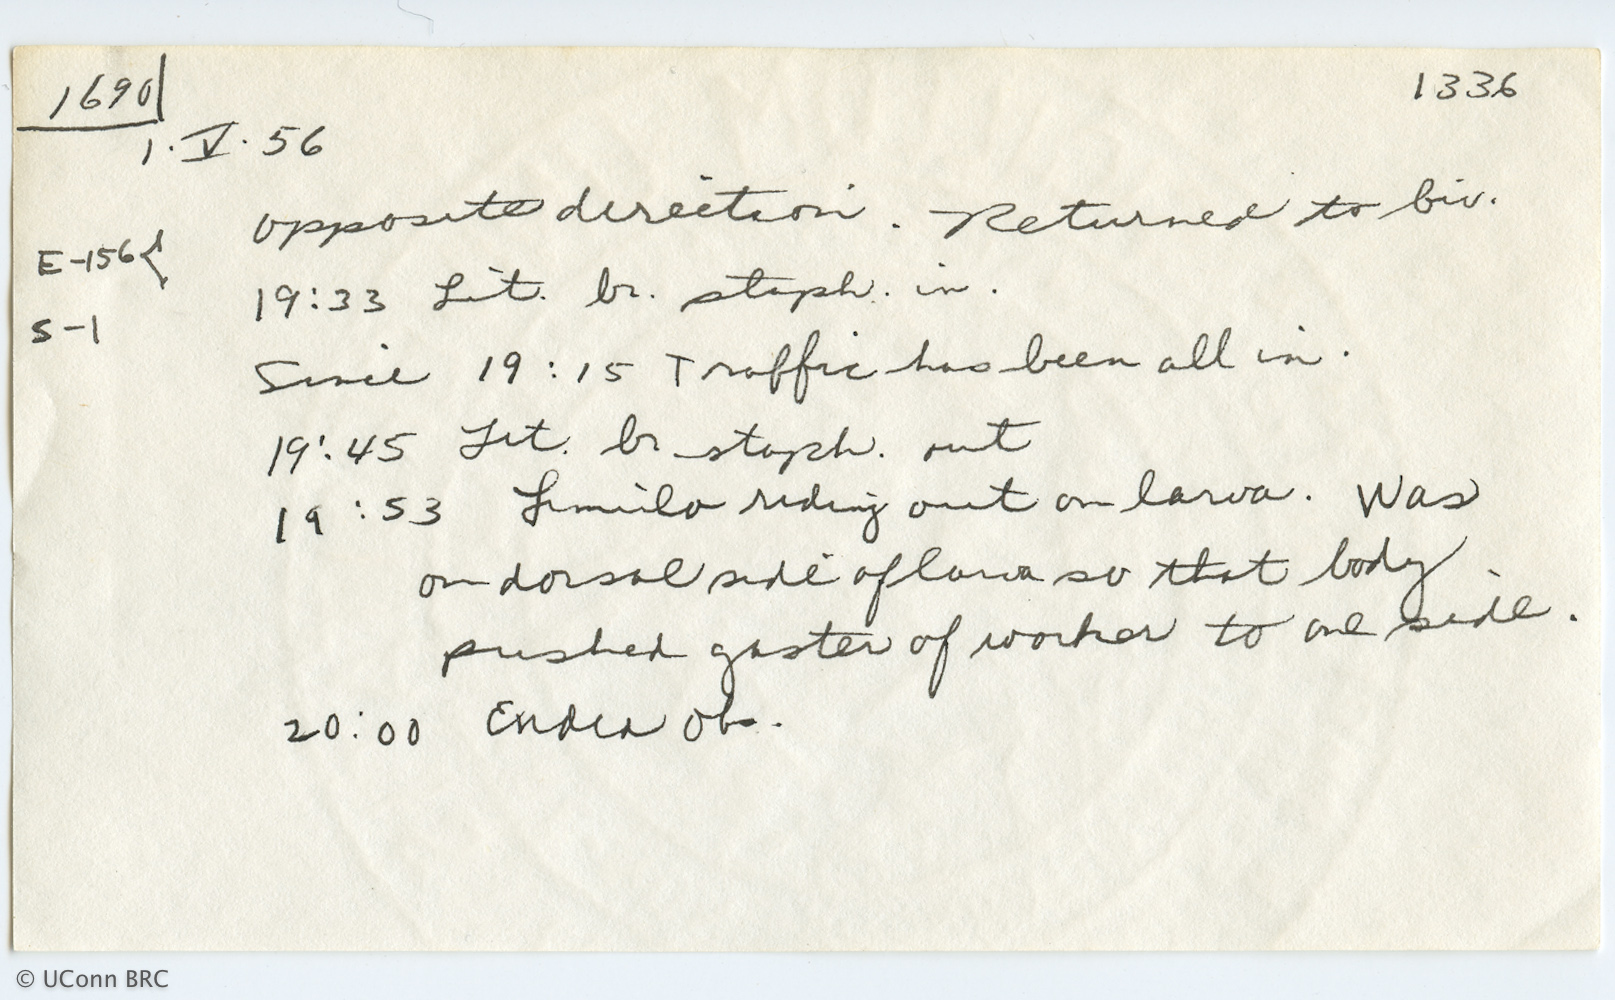 1690
1336
1.V.56
opposite direction. Returned to biv.
E-156
19:33 Lit. br. staph. in.
S-1
Since 19:15 Traffic has been all in.
19:45 Lit. br staph. out
19:53 Limulo riding out on larva. Was
on dorsal side of larva so that body
pushed gaster of worker to one side.
20:00 Ended Obs.
© UConn BRC